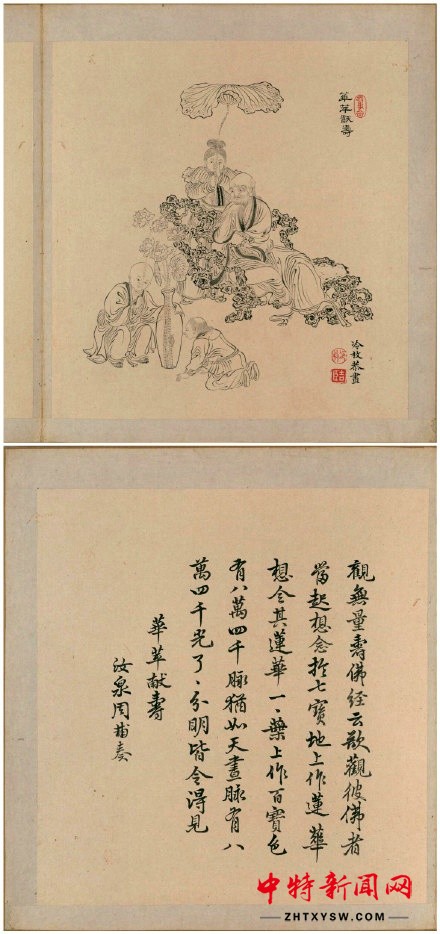 華萃献壽
冷枚恭畫
觀無量壽佛經云欲觀彼佛者
當起想念於七寶地上作蓮華
想令其蓮華一〻葉上作百寶色
有八萬四千脉猶如天畫脉有八
萬四千光了〻分明皆令得見
華萃献壽
汝泉周奏
中特新闻网
ZHTXYSW.COM